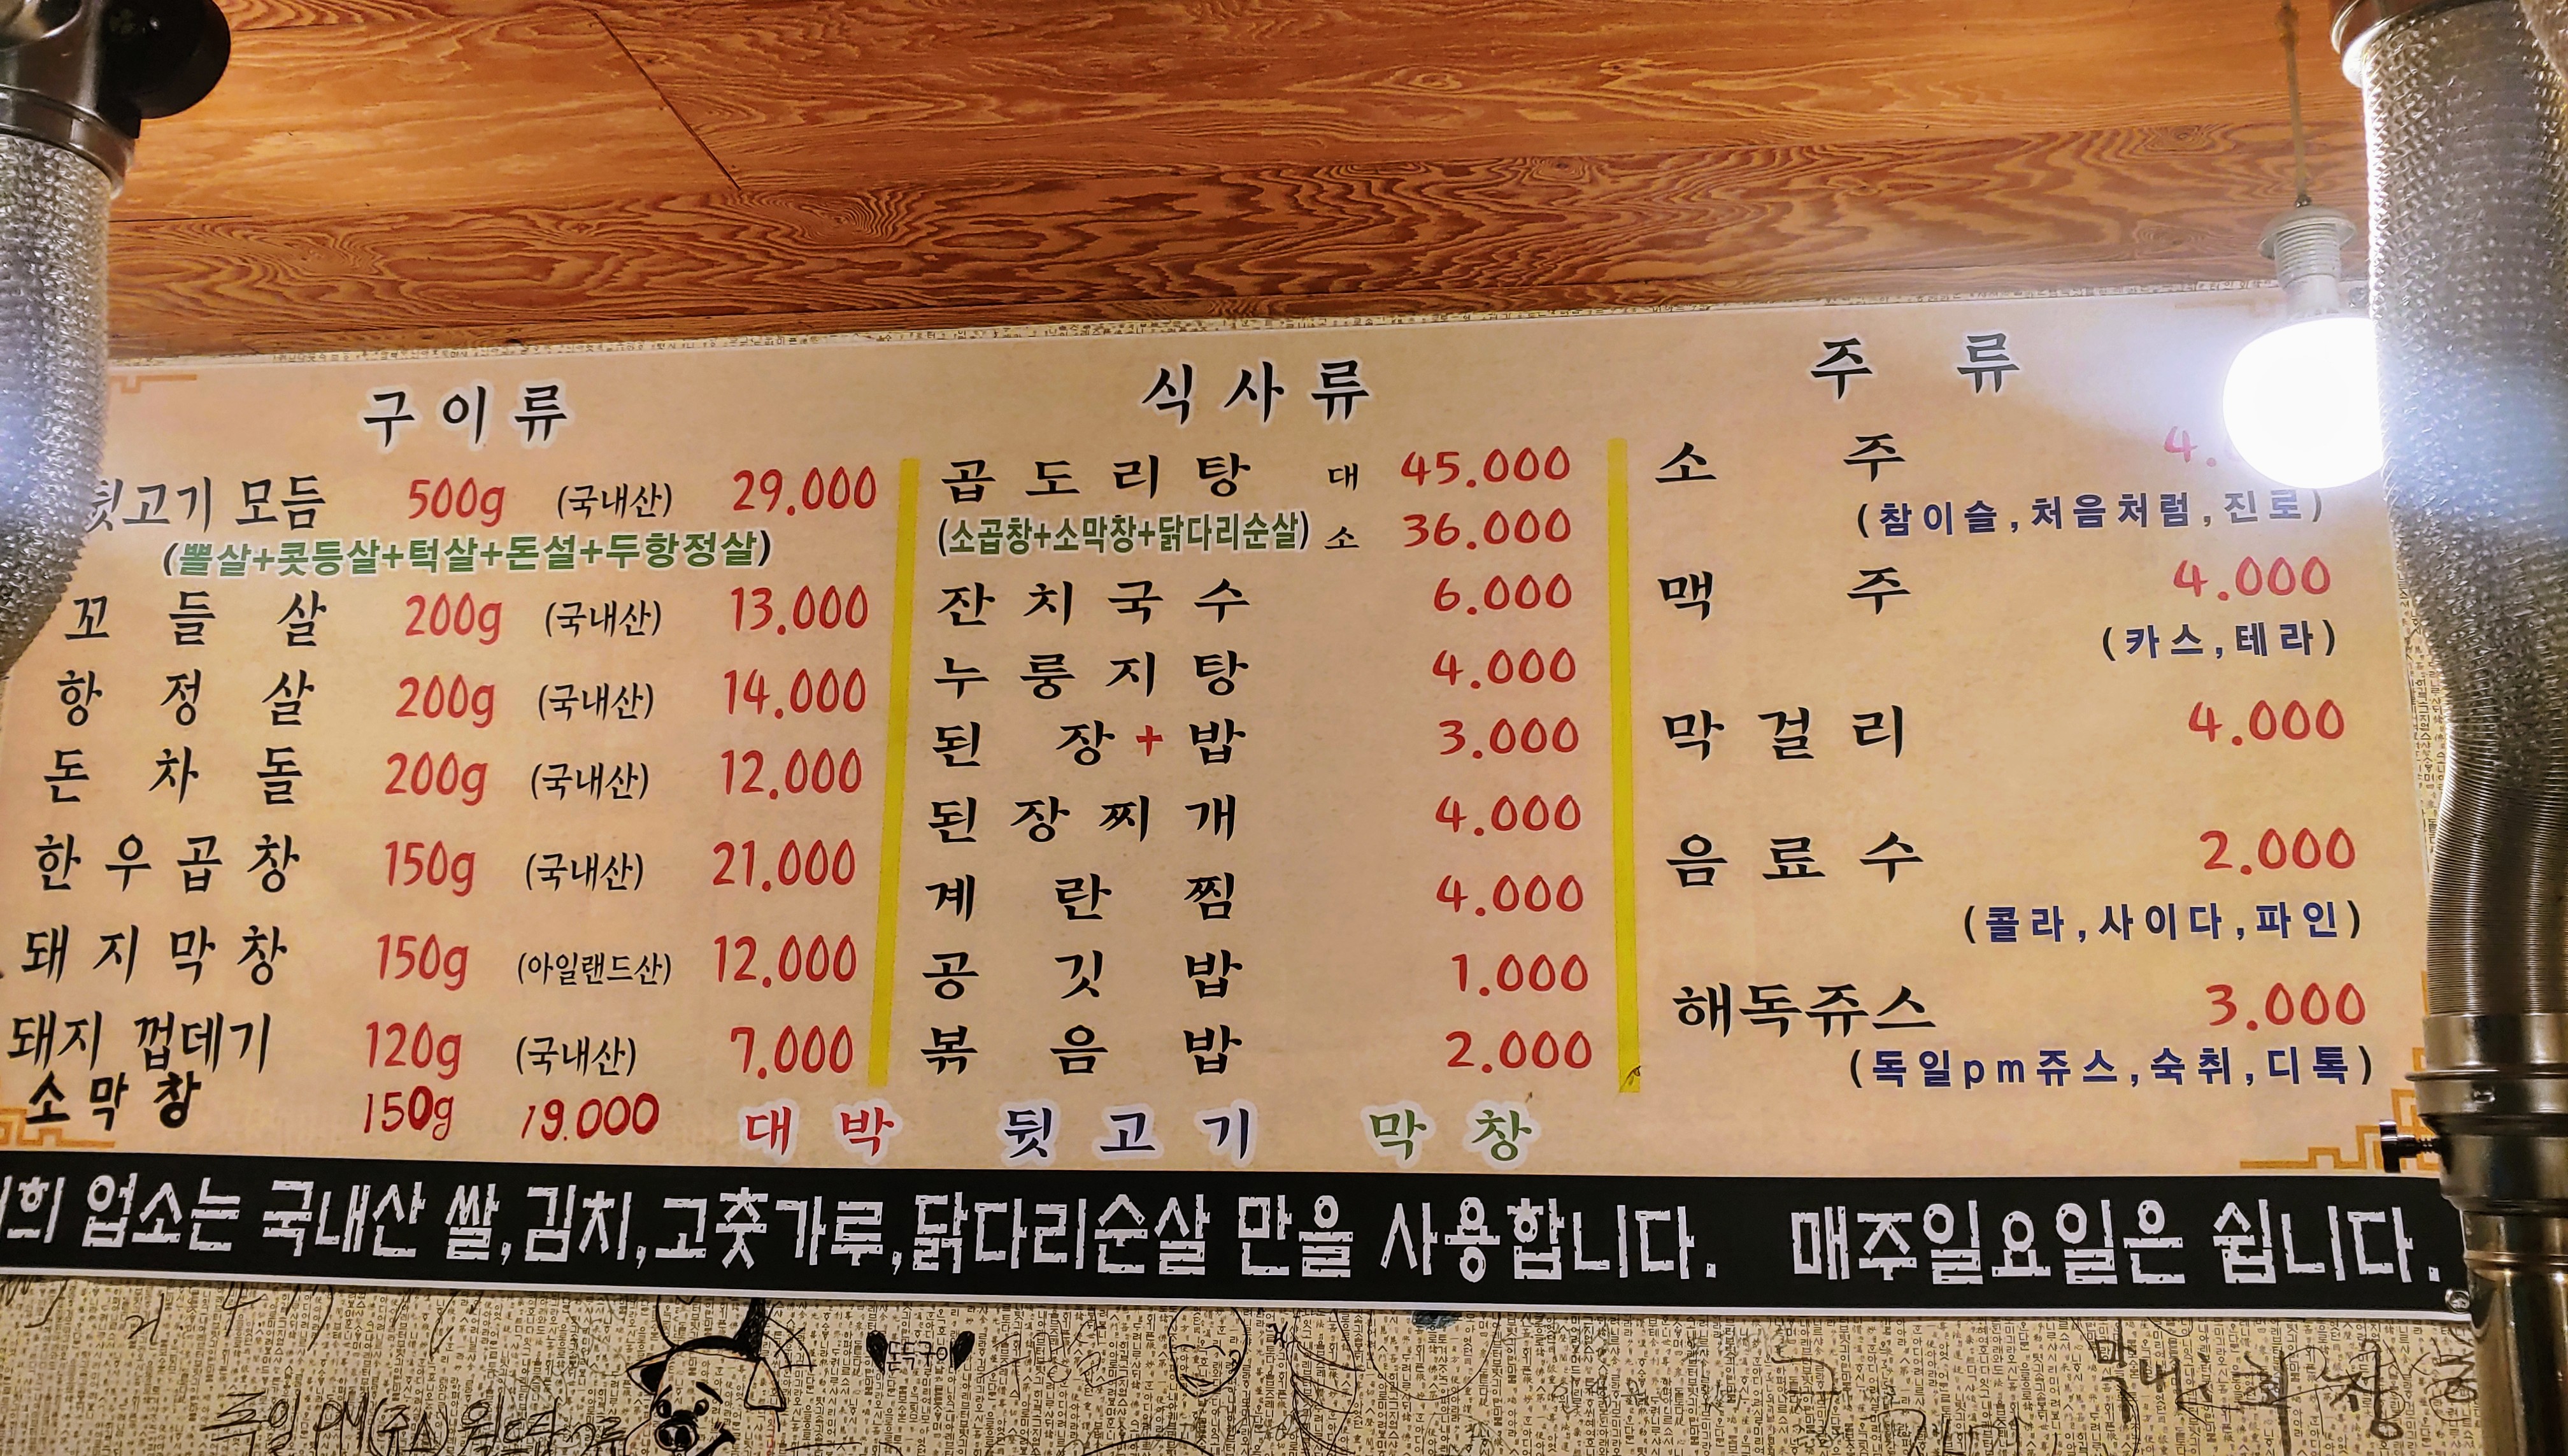 구이류
뒷고기 모듬 500g (국내산) 29.000
(뽈살+콧등살+턱살+돈설+두항정살)
꼬들살 200g (국내산) 13.000
항정살 200g (국내산) 14.000
돈차돌 200g (국내산) 12.000
한우곱창 150g (국내산) 21.000
돼지막창 150g (아일랜드산) 12.000
돼지 껍데기 120g (국내산) 7.000
소막창 150g 19.000
식사류
곱도리탕 대 45.000
(소곱창+소막창+닭다리순살) 소 36.000
잔치국수 6.000
누룽지탕 4.000
된장+밥 3.000
된장찌개 4.000
계란찜 4.000
공깃밥 1.000
볶음밥 2.000
주류
소주 4.
(참이슬,처음처럼,진로)
맥주 4.000
(카스,테라)
막걸리 4.000
음료수 2.000
(콜라,사이다,파인)
해독쥬스 3.000
(독일pm쥬스,숙취,디톡)
대박 뒷고기 막창
희 업소는 국내산 쌀,김치,고춧가루,닭다리순살 만을 사용합니다. 매주일요일은 쉽니다.
돈득구이